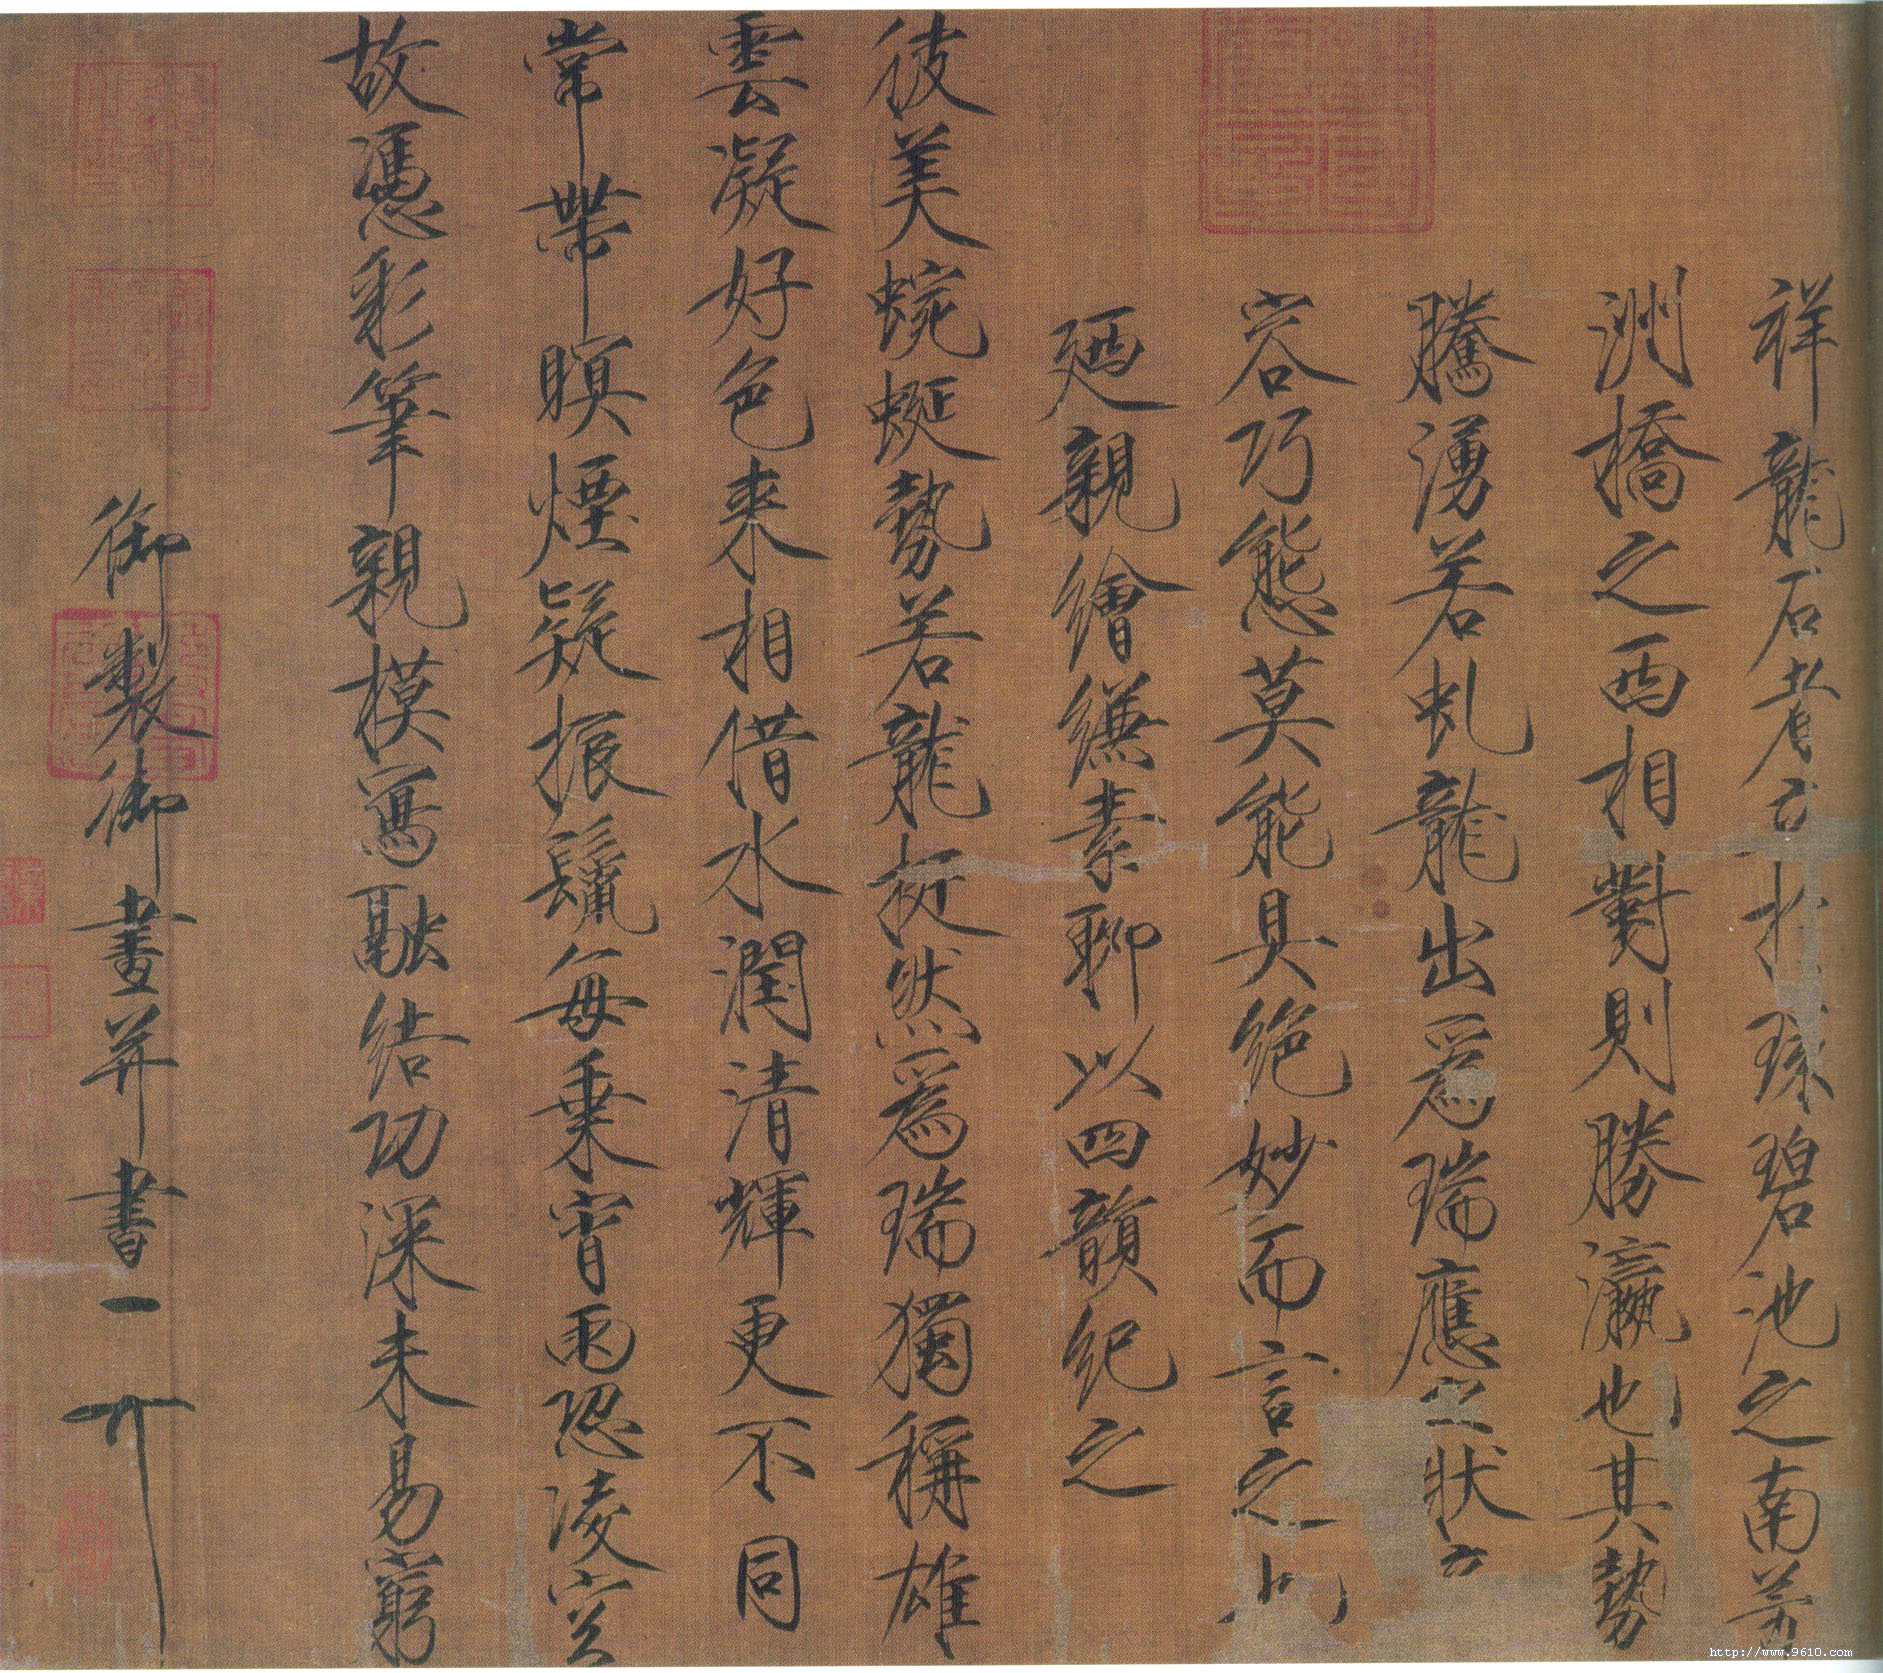 祥龍石者立於環碧池之南芳
洲橋之西相對則勝瀛也其勢
騰湧若虬龍出爲瑞應之狀
容巧態莫能具絶妙而言之也
廼親繪縑素聊以四韻紀之
彼美蜿蜒勢若龍挺然爲瑞獨稱雄
雲凝好色来相借水潤清輝更不同
常帶暝煙疑振鬣每乗宵雨恐凌空
故憑彩筆親模寫融結功深未易窮
御製御畫并書
http://www.9610.com